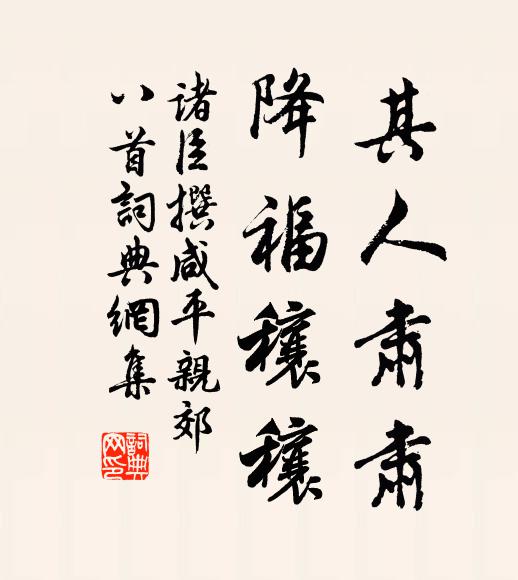 其人肅肅
降福穰穰
諸臣撰咸平親郊
八首詞典網集
詞典網印